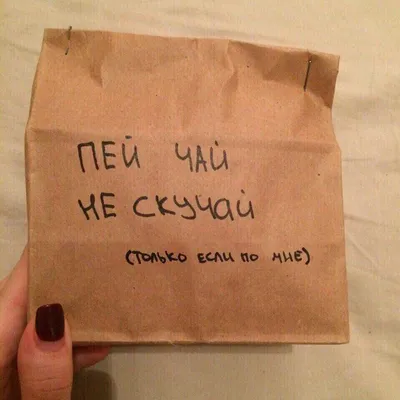 ПЕЙ ЧАЙ
НЕ СКУЧАЙ
(ТОЛЬКО ЕСЛИ ПО МНЕ)